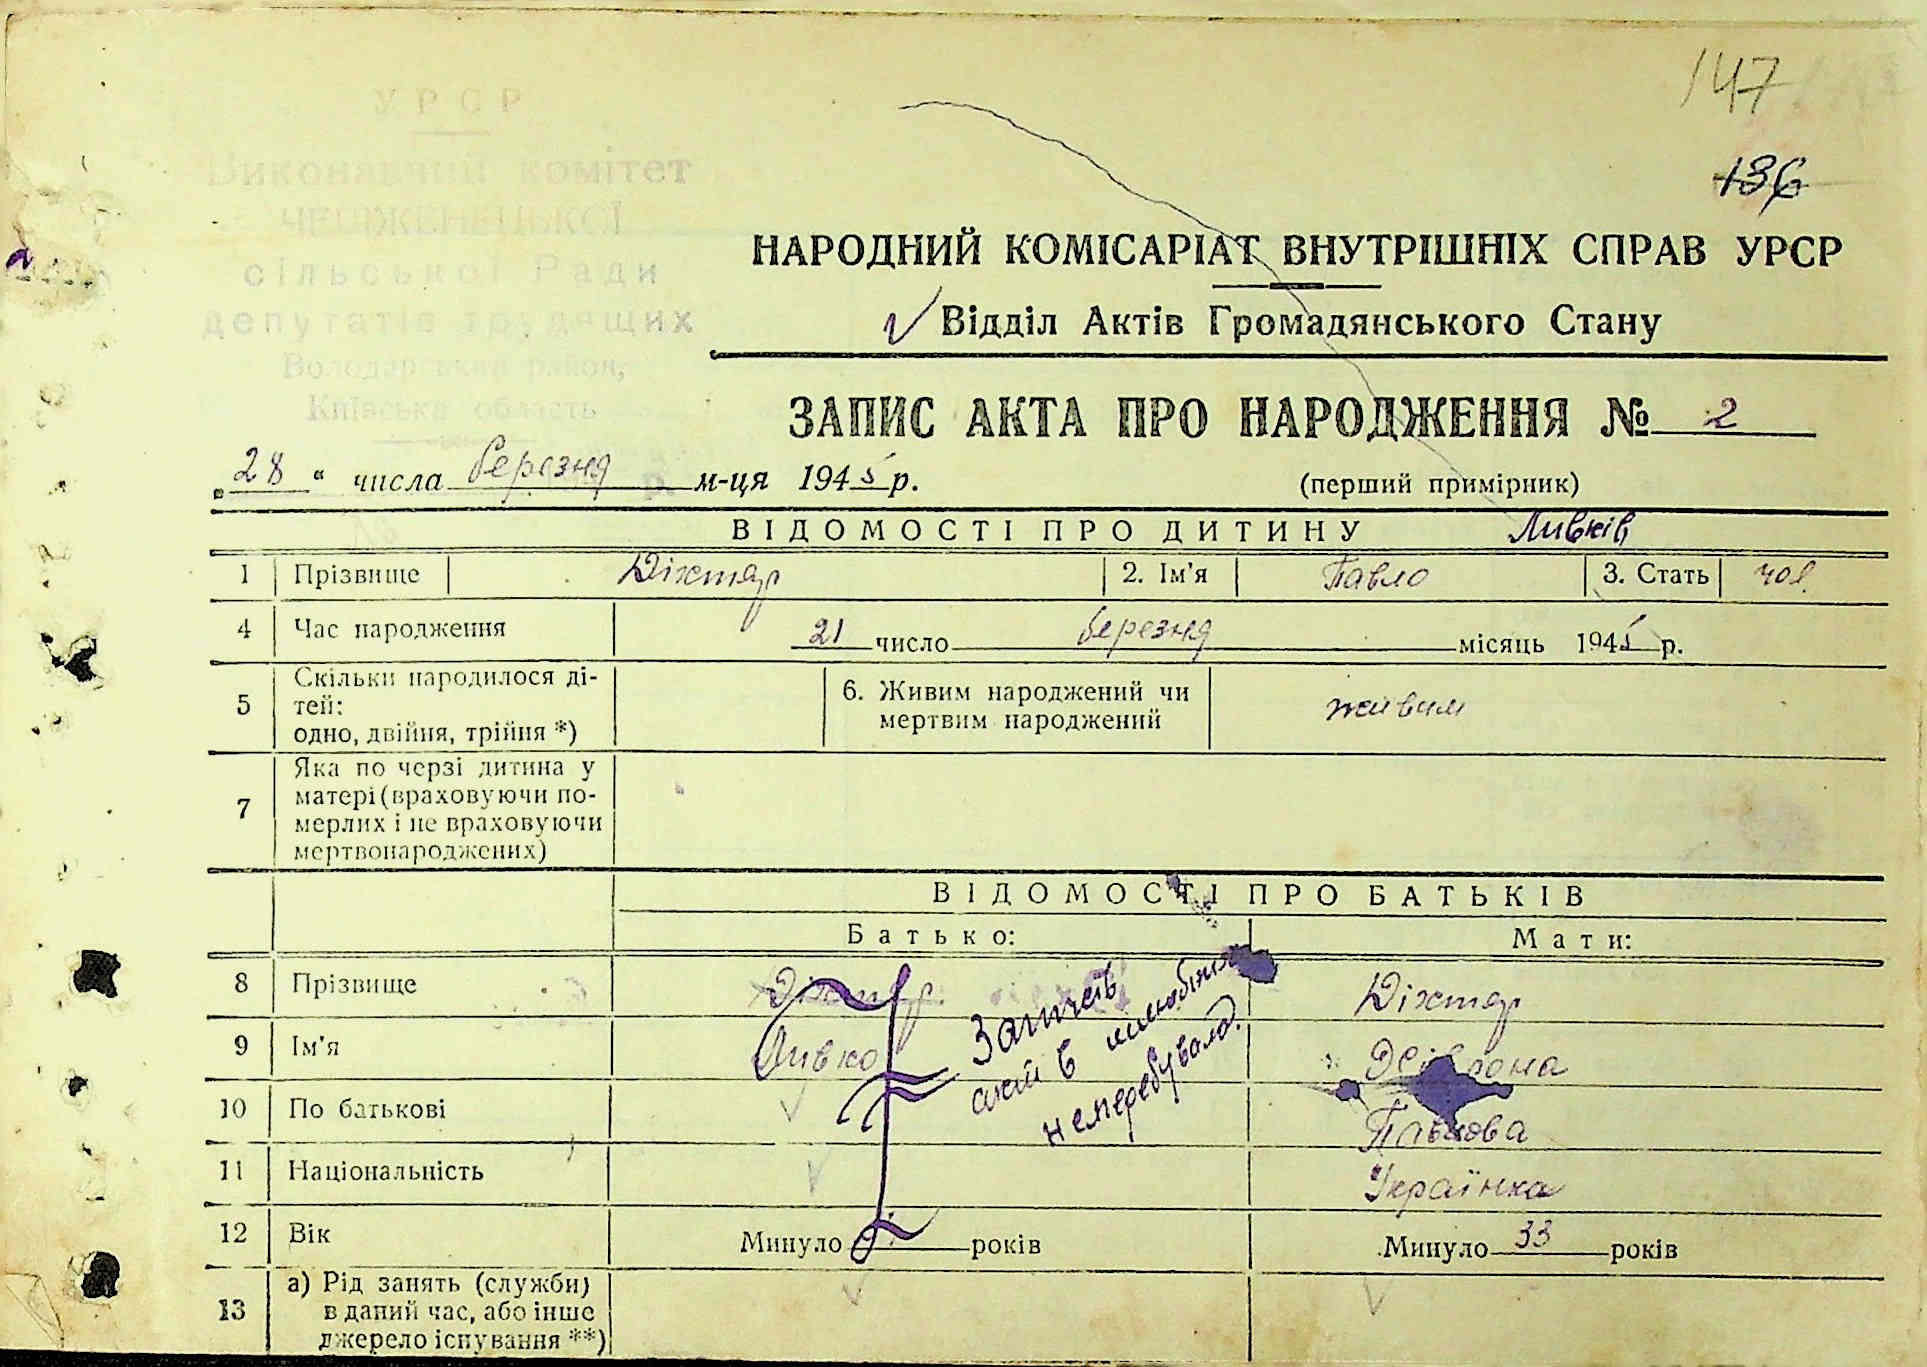 147
136
УРСР
Виконавчий комітет
сільської Ради
депутатів трудящих
Володарський район,
Київська область
НАРОДНИЙ КОМІСАРІАТ ВНУТРІШНІХ СПРАВ УРСР
Відділ Актів Громадянського Стану
ЗАПИС АКТА ПРО НАРОДЖЕННЯ № 2
„28“ числа березня м-ця 1945 р.
(перший примірник)
ВІДОМОСТІ ПРО ДИТИНУ Ливків
1 Прізвище Діхтяр 2. Ім'я Павло 3. Стать чол.
4 Час народження 21 число березня місяць 1945 р.
5 Скільки народилося ді-
тей:
одно, двійня, трійня *)
6. Живим народжений чи
мертвим народжений живим
7 Яка по черзі дитина у
матері (враховуючи по-
мерлих і не враховуючи
мертвонароджених)
ВІДОМОСТІ ПРО БАТЬКІВ
Батько: Мати:
8 Прізвище Діхтяр Діхтяр
9 Ім'я Ливко
10 По батькові
11 Національність Українка
12 Вік Минуло років Минуло 33 років
13 а) Рід занять (служби)
в даний час, або інше
джерело існування **)
в
неперебувала.